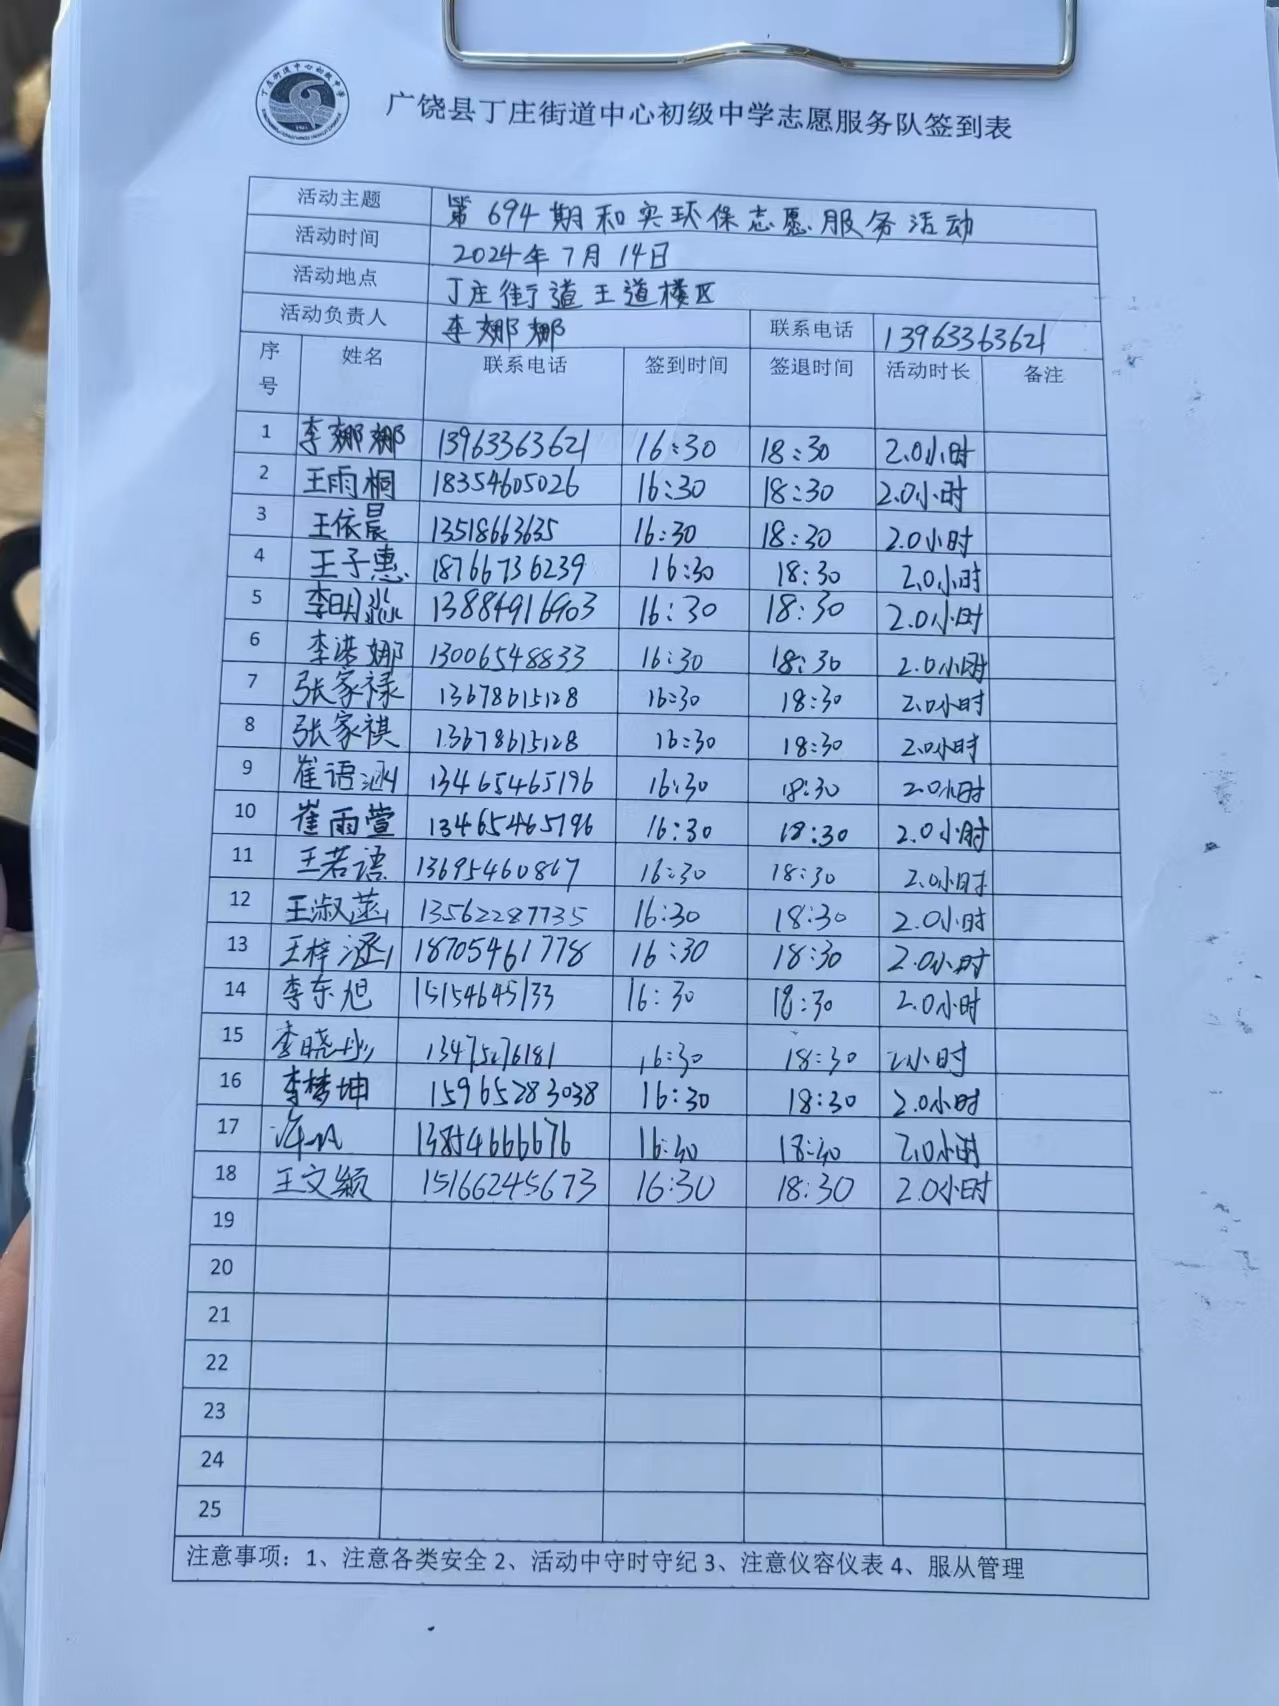 广饶县丁庄街道中心初级中学志愿服务队签到表
活动主题 第694期和实环保志愿服务活动
活动时间 2024年7月14日
活动地点 丁庄街道王道楼区
活动负责人 李娜娜 联系电话 13963363621
序号 姓名 联系电话 签到时间 签退时间 活动时长 备注
1 李娜娜 13963363621 16:30 18:30 2.0小时
2 王雨桐 18354605026 16:30 18:30 2.0小时
3 王依晨 13518663635 16:30 18:30 2.0小时
4 王子惠 18766736239 16:30 18:30 2.0小时
5 李明 13884916903 16:30 18:30 2.0小时
6 李诺娜 13006548833 16:30 18:30 2.0小时
7 张家禄 13678615128 16:30 18:30 2.0小时
8 张家祺 13678615128 16:30 18:30 2.0小时
9 崔语涵 13465465196 16:30 18:30 2.0小时
10 崔雨萱 13465465196 16:30 18:30 2.0小时
11 王若语 13695460867 16:30 18:30 2.0小时
12 王淑菡 13562287735 16:30 18:30 2.0小时
13 王梓涵 18705461778 16:30 18:30 2.0小时
14 李东旭 15154645133 16:30 18:30 2.0小时
15 李晓彤 13475276181 16:30 18:30 2小时
16 李梦坤 15965283038 16:30 18:30 2.0小时
17 13854666676 16:30 18:30 2.0小时
18 王文颖 15166245673 16:30 18:30 2.0小时
19
20
21
22
23
24
25
注意事项：1、注意各类安全 2、活动中守时守纪 3、注意仪容仪表 4、服从管理